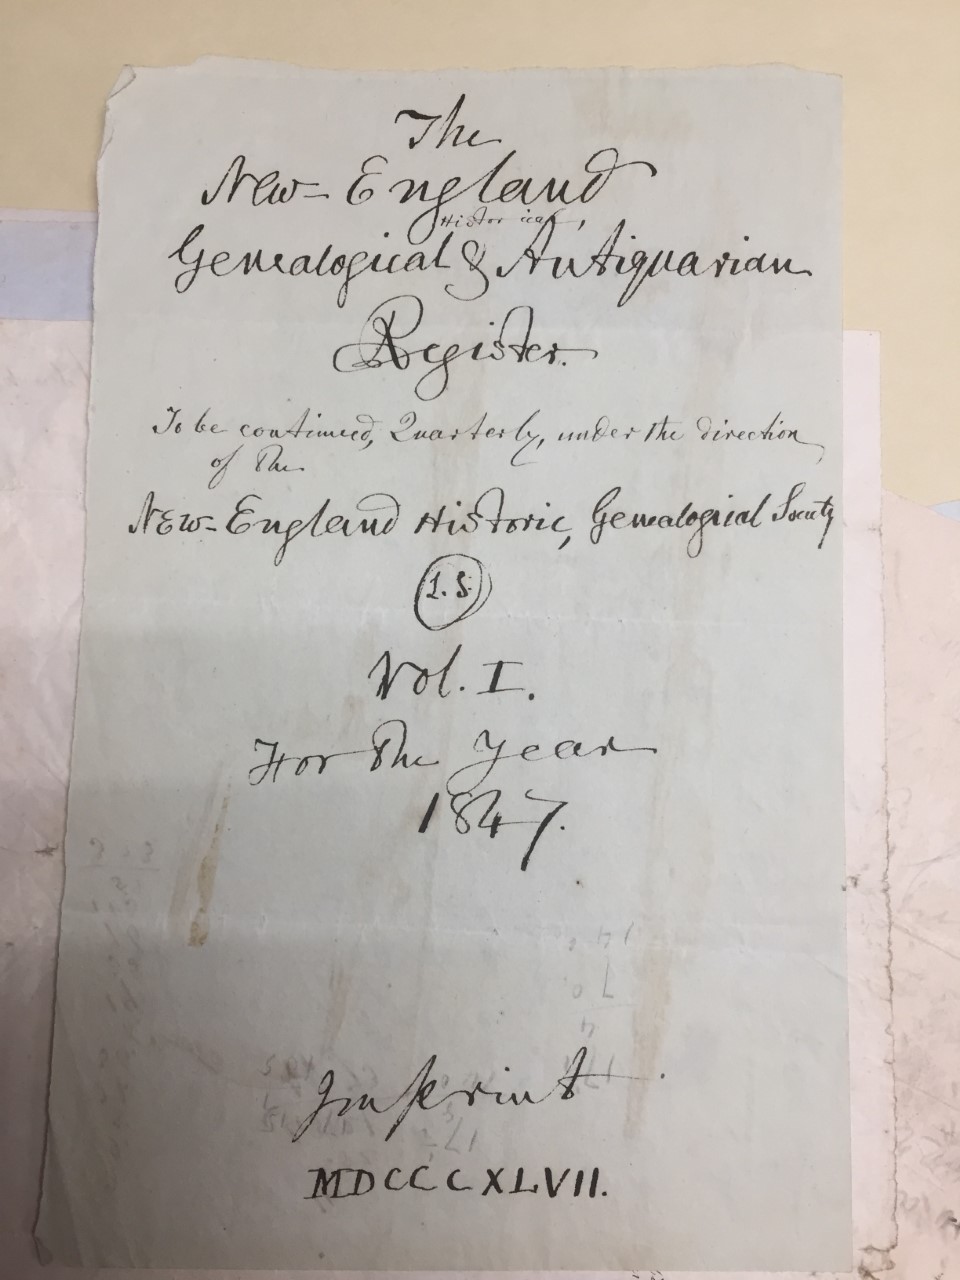 The
New-England
Historical,
Genealogical & Antiquarian
Register.
To be continued, Quarterly, under the direction
of the
New-England Historic, Genealogical Society
L.S.
Vol. I.
For the Year
1847.
Imprint
MDCCCXLVII.